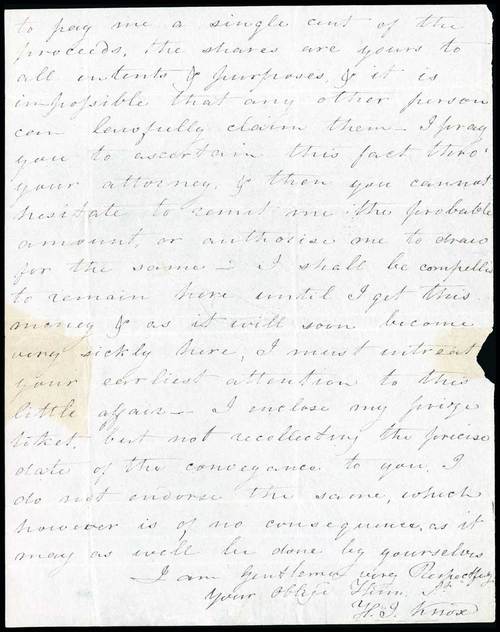 to pay me a single cent of the
proceeds. the shares are yours to
all intents & purposes, & it is
impossible that any other person
can lawfully claim them - I pray
you to ascertain this fact thro'
your attorney, & then you cannot
hesitate to remit me the probable
amount, or authorise me to draw
for the same - I shall be compelled
to remain here until I get this
money & as it will soon become
very sickly here, I must intreat
your earliest attention to this
little affair - I enclose my prize
ticket. but not recollecting the precise
date of the conveyance to you, I
do not endorse the same, which
however is of no consequence, as it
may as well be done by yourselves
I am Gentlemen very Respectfully
Your Oblige
H. J. Knox